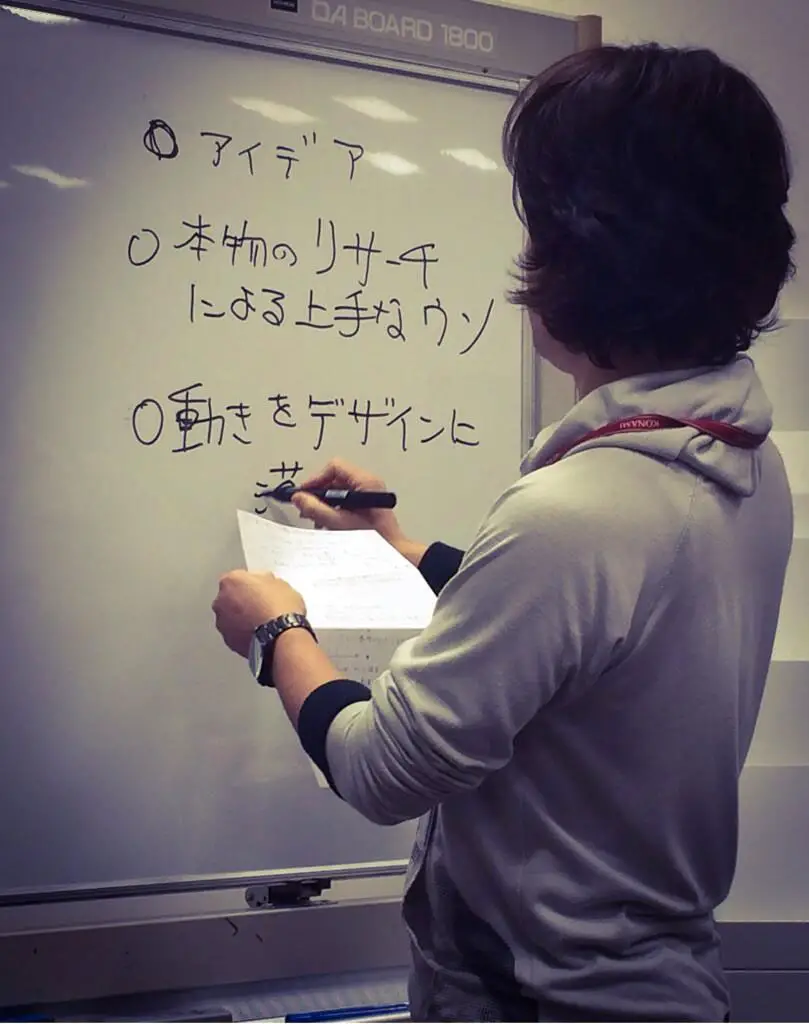 DA BOARD 1800
○ アイデア
○ 本物のリサーチ
による上手なウソ
○ 動きをデザインに
落
KONAMI